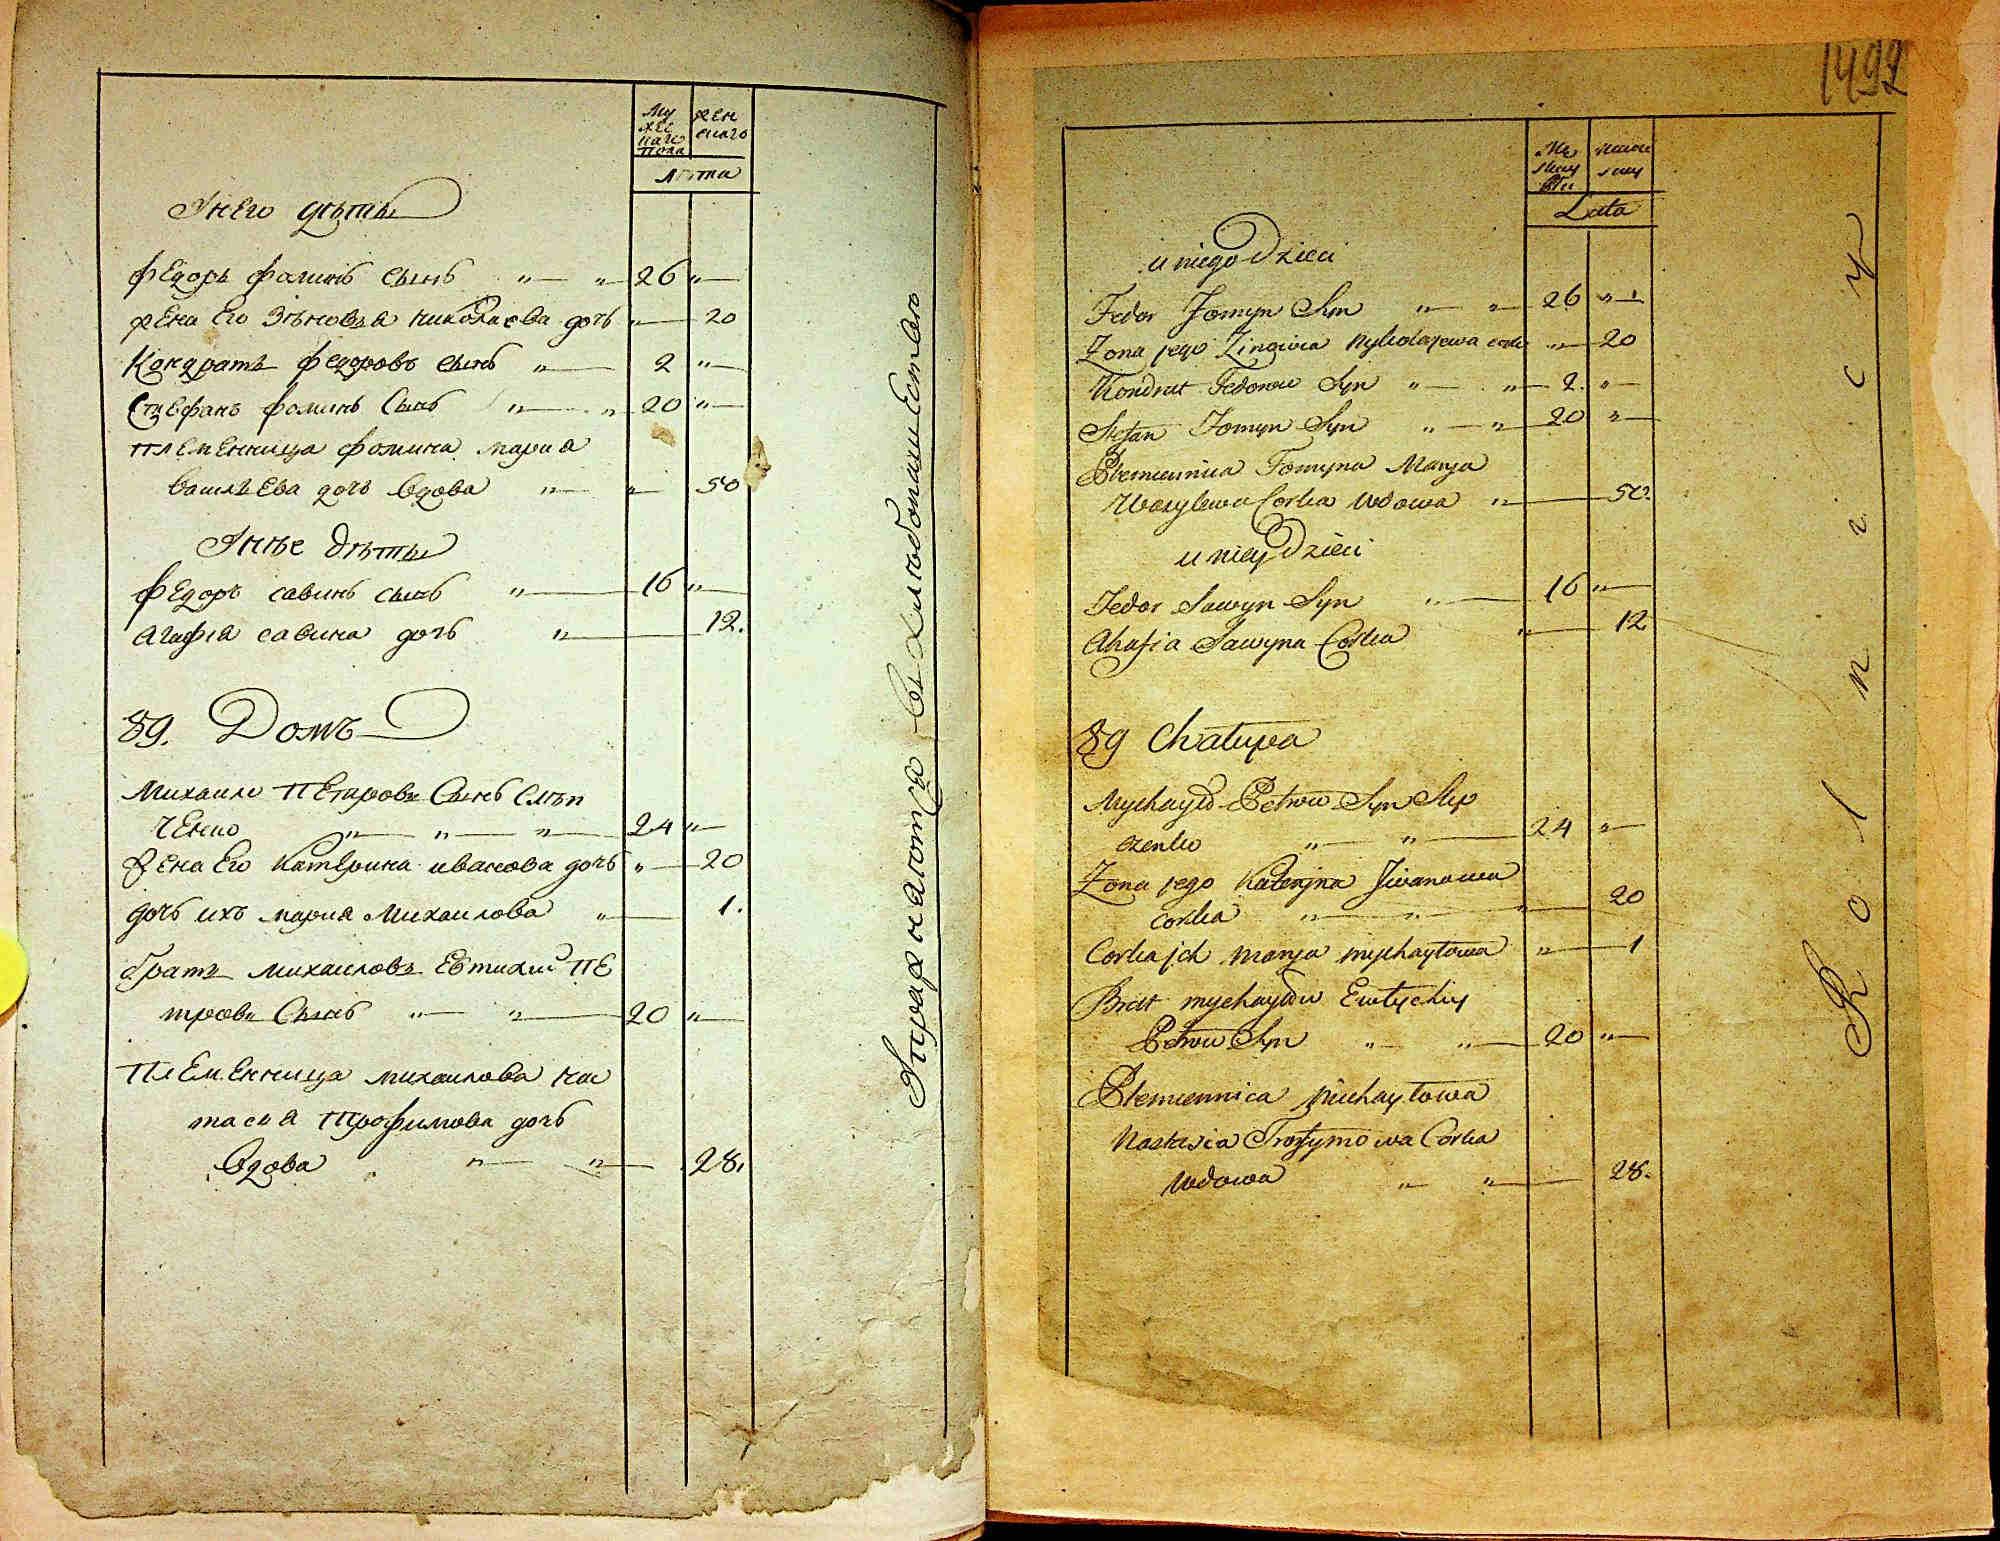 Му
жес
каго
пола
жен
скаго
Лѣта
Унего дѣти
Федоръ Фоминъ сынъ „ — „ 26 „ —
жена Его Зѣновія николаева дочь „ — 20
Кондратъ Федоровъ сынъ „ — 2 „ —
Стефанъ Фоминъ Сынъ „ — „ 20 „ —
племенница Фомина мария
васильева дочь вдова „ — „ — 50
Унѣе дѣти
Федоръ савинъ сынъ „ — 16 „ —
агафія савина дочь „ — 12.
89. Домъ
Михаило Петровъ Сынъ Слѣп
ченко „ — „ — „ — 24 „ —
жена Его Катерина иванова дочь „ — 20
дочь ихъ мария Михаилова „ — 1.
братъ михаиловъ Евтихий Пе
тровъ Сынъ „ — „ — 20 „ —
племенница михаилова нас
тасия Трофимова дочь
вдова „ — „ — 28.
Упражняются въ хлѣбопашествѣ
1492
Męz
skiey
Płci
skiey
Lata
u niego Dzieci
Fedor Fomyn Syn „ — „ — 26 „ —
Zona jego Zinowia Mykolajewa corka „ — 20
Kondrat Fedorow Syn „ — „ — 2. „ —
Stefan Fomyn Syn „ — „ — 20 „ —
Plemiennica Fomyna Marya
Wasylewa Corka Wdowa „ — 50.
u niey Dzieci
Fedor Sawyn Syn „ — 16 „ —
Ahafia Sawyna Corka „ — 12
89 Chałupa
Mychayło Petrow Syn Slip
czenko „ — „ — 24 „ —
Zona jego Katerjna Jwanowa
corka „ — „ — „ — 20
Corka jch Marya mychayłowa „ — 1
Brat mychayłow Ewtychiy
Petrow Syn „ — „ — 20 „ —
Plemiennica Michayłowa
Nastasia Trofymowa Corka
Wdowa „ — „ — 28.
Rolnicy